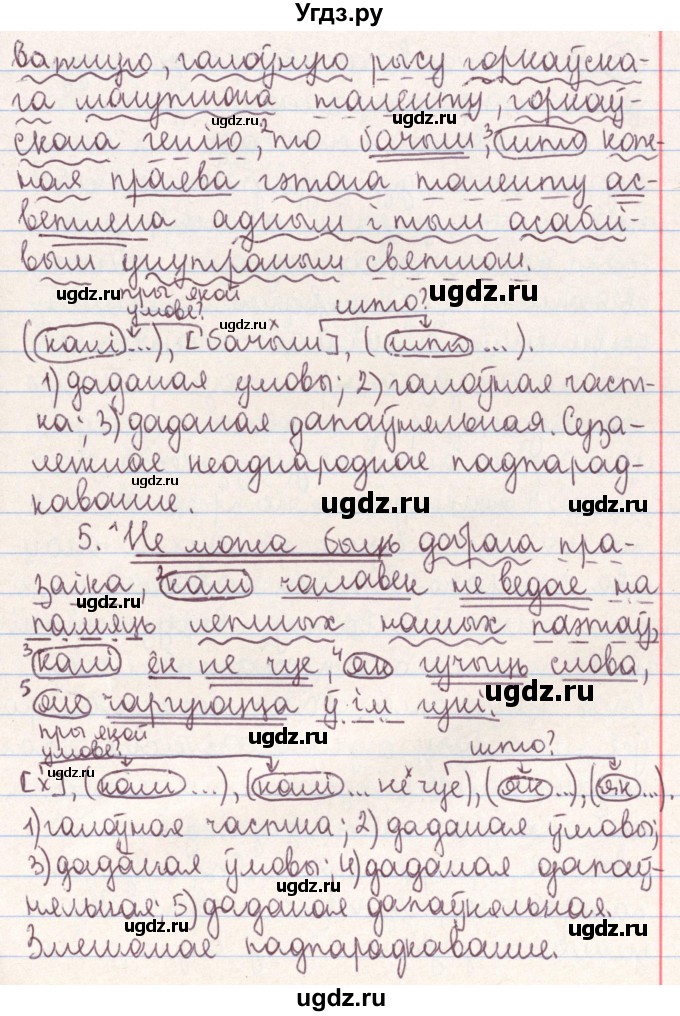 Угдз.ру
важную, галоўную рысу горкаўска-
га магутнага таленту, горкаў-
скага генію,² то бачым,³ што кож-
ная праява гэтага таленту ас-
ветлена адным і тым асаблі-
вым унутраным святлом.
пры якой умове? што?
(калі ...), [бачым], (што ...).
1) даданая ўмовы; 2) галоўная част-
ка; 3) даданая дапаўняльная. Суза-
лежнае неаднароднае падпарад-
каванне.
5. ¹Не можа быць добрага пра-
заіка, ²калі чалавек не ведае на
памяць лепшых нашых паэтаў,
³калі ён не чуе, ⁴як гучыць слова,
⁵як чаргуюцца ў ім гукі.
пры якой умове? што?
[x], (калі ...), (калі ... не чуе), (як ...), (як ...).
1) галоўная частка; 2) даданая ўмовы;
3) даданая ўмовы; 4) даданая дапаў-
няльная; 5) даданая дапаўняльная.
Змешанае падпарадкаванне.
ugdz.ru